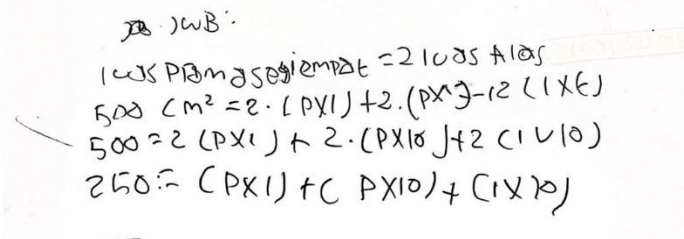 JWB:
luas Prismasegiempat = 2 luas Alas
500 cm² = 2. (PXl) + 2. (PXt) + 2 (lXt)
500 = 2 (PXl) + 2. (PX10) + 2 (lX10)
250 = (PXl) + (PX10) + (lX10)